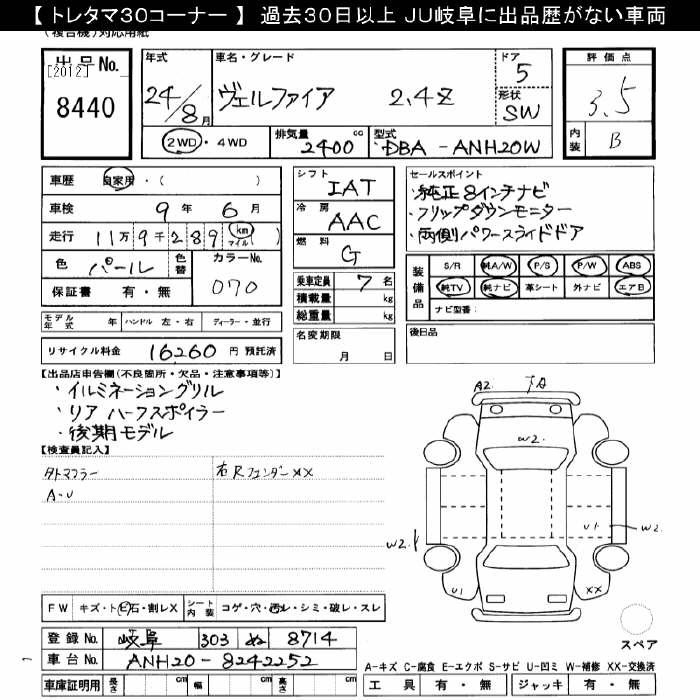 【 トレタマ30コーナー 】 過去30日以上 JU岐阜に出品歴がない車両
(複合機)対応用紙
出品No.
[2012]
8440
年式
24/8月
車名・グレード
ヴェルファイア 2.4Z
ドア
5
形状
SW
評価点
3.5
内装
B
2WD・4WD
排気量
2400 cc
型式
DBA-ANH20W
車歴 自家用・( )
車検 9年 6月
走行 11万9千289 (km マイル)( )
色 パール 色替
カラーNo.
070
保証書 有・無
シフト
IAT
冷房
AAC
燃料
G
乗車定員 7名
積載量 kg
総重量 kg
セールスポイント
・純正8インチナビ
・フリップダウンモニター
・両側パワースライドドア
装備品
S/R 純A/W P/S P/W ABS
純TV 純ナビ 革シート 外ナビ エアB
ナビ型番:
モデル年式 年 ハンドル 左・右 ディーラー・並行
リサイクル料金 16260 円 預託済
名変期限
月 日
後日品
【出品店申告欄(不良箇所・欠品・注意事項等)】
・イルミネーショングリル
・リアハーフスポイラー
・後期モデル
【検査員記入】
タトマフラー
A-U
右Rフェンダー XX
A2
A
W2.
W2.
U1
W2.
U1
XX
FW キズ・トビ石・割レX
シート内装 コゲ・穴・汚レ・シミ・破レ・スレ
スペア
登録No. 岐阜 303 ぬ 8714
車台No. ANH20-8242252
A-キズ C-腐食 E-エクボ S-サビ U-凹ミ W-補修 XX-交換済
車庫証明用 長さ cm 幅 cm 高さ cm
工具 有・無 ジャッキ 有・無